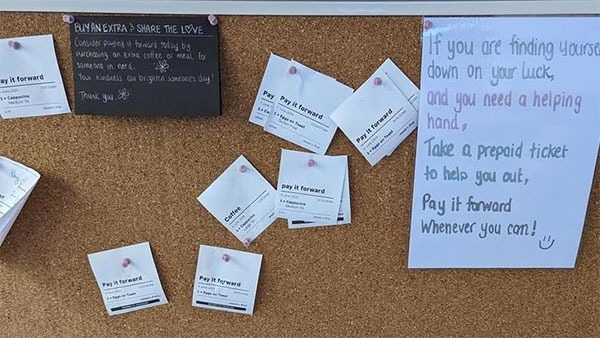 BUY AN EXTRA & SHARE THE LOVE
Consider paying it forward today by
purchasing an extra coffee or meal for
someone in need.
Your kindness can brighten someone's day!
Thank you.
If you are finding yourse
down on your luck,
and you need a helping
hand,
Take a prepaid ticket
to help you out,
Pay it forward
whenever you can!
Pay it forward
1 × Cappuccino
Medium TA
Pay it forward
Pay it forward
1 × Eggs on Toast
Pay it forward
Coffee
pay it forward
1 × Cappuccino
Medium TA
Pay it forward
1 × Eggs on Toast
Pay it forward
1 × Eggs on Toast